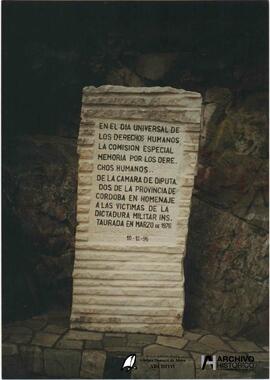 EN EL DIA UNIVERSAL DE
LOS DERECHOS HUMANOS
LA COMISION ESPECIAL
MEMORIA POR LOS DERE_
CHOS HUMANOS..
DE LA CAMARA DE DIPUTA_
DOS DE LA PROVINCIA DE
CORDOBA EN HOMENAJE
A LAS VICTIMAS DE LA
DICTADURA MILITAR INS_
TAURADA EN MARZO DE 1976
10-12-96
ARCHIVO
ARCHIVO
HISTÓRICO